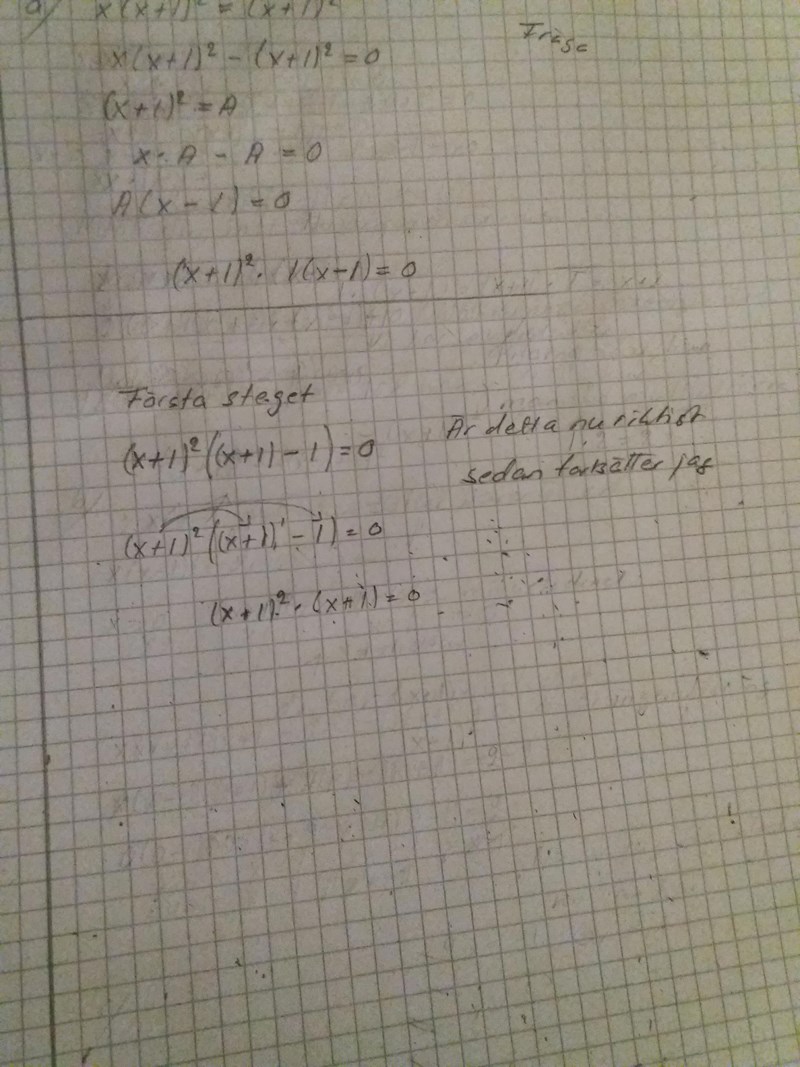 a) x(x+1)² = (x+1)²
x(x+1)² - (x+1)² = 0
(x+1)² = A
x·A - A = 0
A(x-1) = 0
(x+1)²· 1(x-1) = 0
Första steget
(x+1)²((x+1)-1) = 0
Är detta nu riktigt
sedan forsätter jag
(x+1)²((x+1)¹-1) = 0
(x+1)²·(x+1) = 0